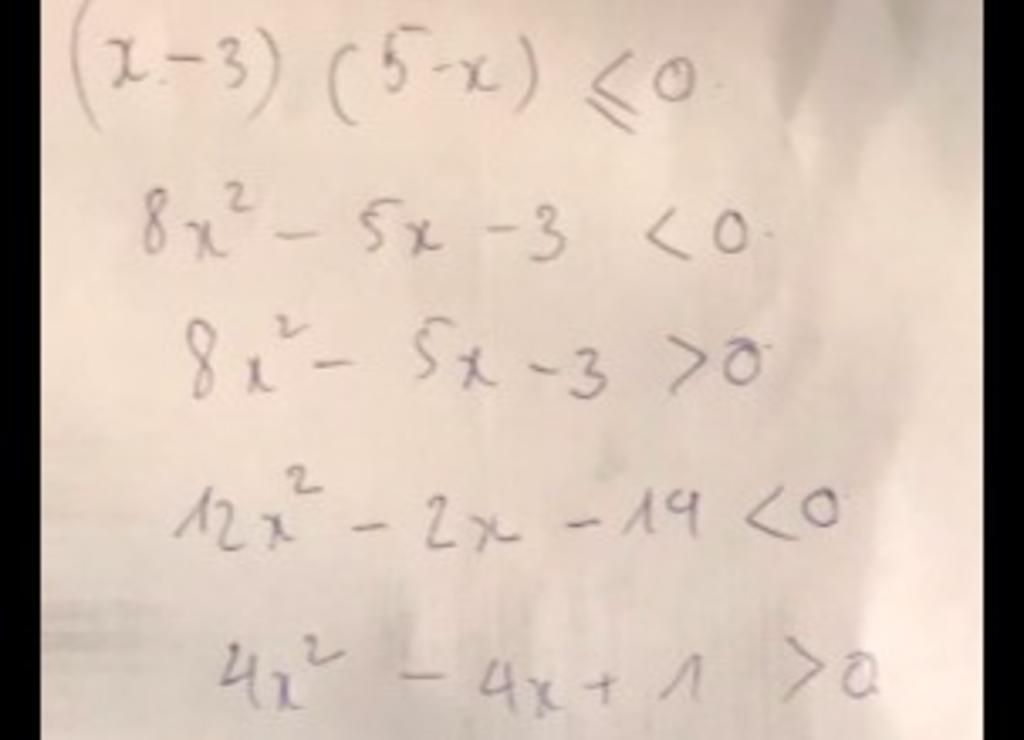 (x-3) (5-x) ⩽ 0
8x² - 5x - 3 < 0
8x² - 5x - 3 > 0
12x² - 2x - 14 < 0
4x² - 4x + 1 > 0